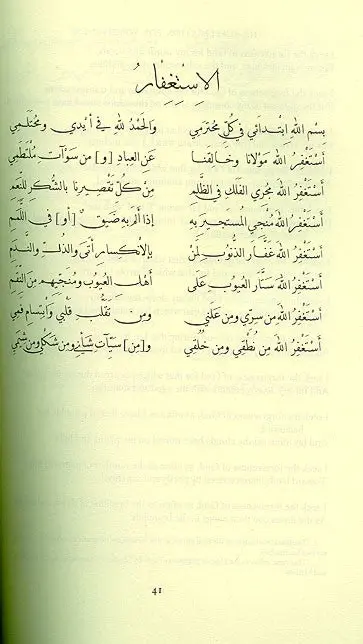 الاِسْتِغْفَارُ
بِسْمِ اللهِ اِبْتِدَائِي فِي كُلِّ مُحْتَرَمِي وَالحَمْدُ للهِ فِي أَيْدِي وَمُخْتَلَمِي
أَسْتَغْفِرُ اللهَ مَوْلَانَا وَخَالِقَنَا عَنِ العِبَادِ [و] مِن سَوْآتِ مُلْتَطَمِي
أَسْتَغْفِرُ اللهَ مُجْرِي الفَلَكِ فِي الظُّلَمِ مِنْ كُلِّ تَقْصِيرِنَا بِالشُّكْرِ لِلنِّعَمِ
أَسْتَغْفِرُ اللهَ مُنْجِي المُسْتَجِيرِ بِهِ إِذَا أَلَمَّ بِهِ ضَيْقٌ [أو] فِي اللَّمَمِ
أَسْتَغْفِرُ اللهَ غَفَّارَ الذُّنُوبِ لِمَنْ بِالاِنْكِسَارِ أَتَى وَالذُّلِّ وَالنَّدَمِ
أَسْتَغْفِرُ اللهَ سَتَّارَ العُيُوبِ عَلَى أَهْلِ العُيُوبِ وَمُنَجِّيهِم مِنَ النِّقَمِ
أَسْتَغْفِرُ اللهَ مِن سِرِّي وَمِن عَلَنِي وَمِن تَقَلُّبِ قَلْبِي وَابْتِسَامِ فَمِي
أَسْتَغْفِرُ اللهَ مِن نُطْقِي وَمِن خُلُقِي و[مِن] سَيِّآتِ شَأْنِي وَمِن شَكْلِي وَمِن شِيَمِي
41